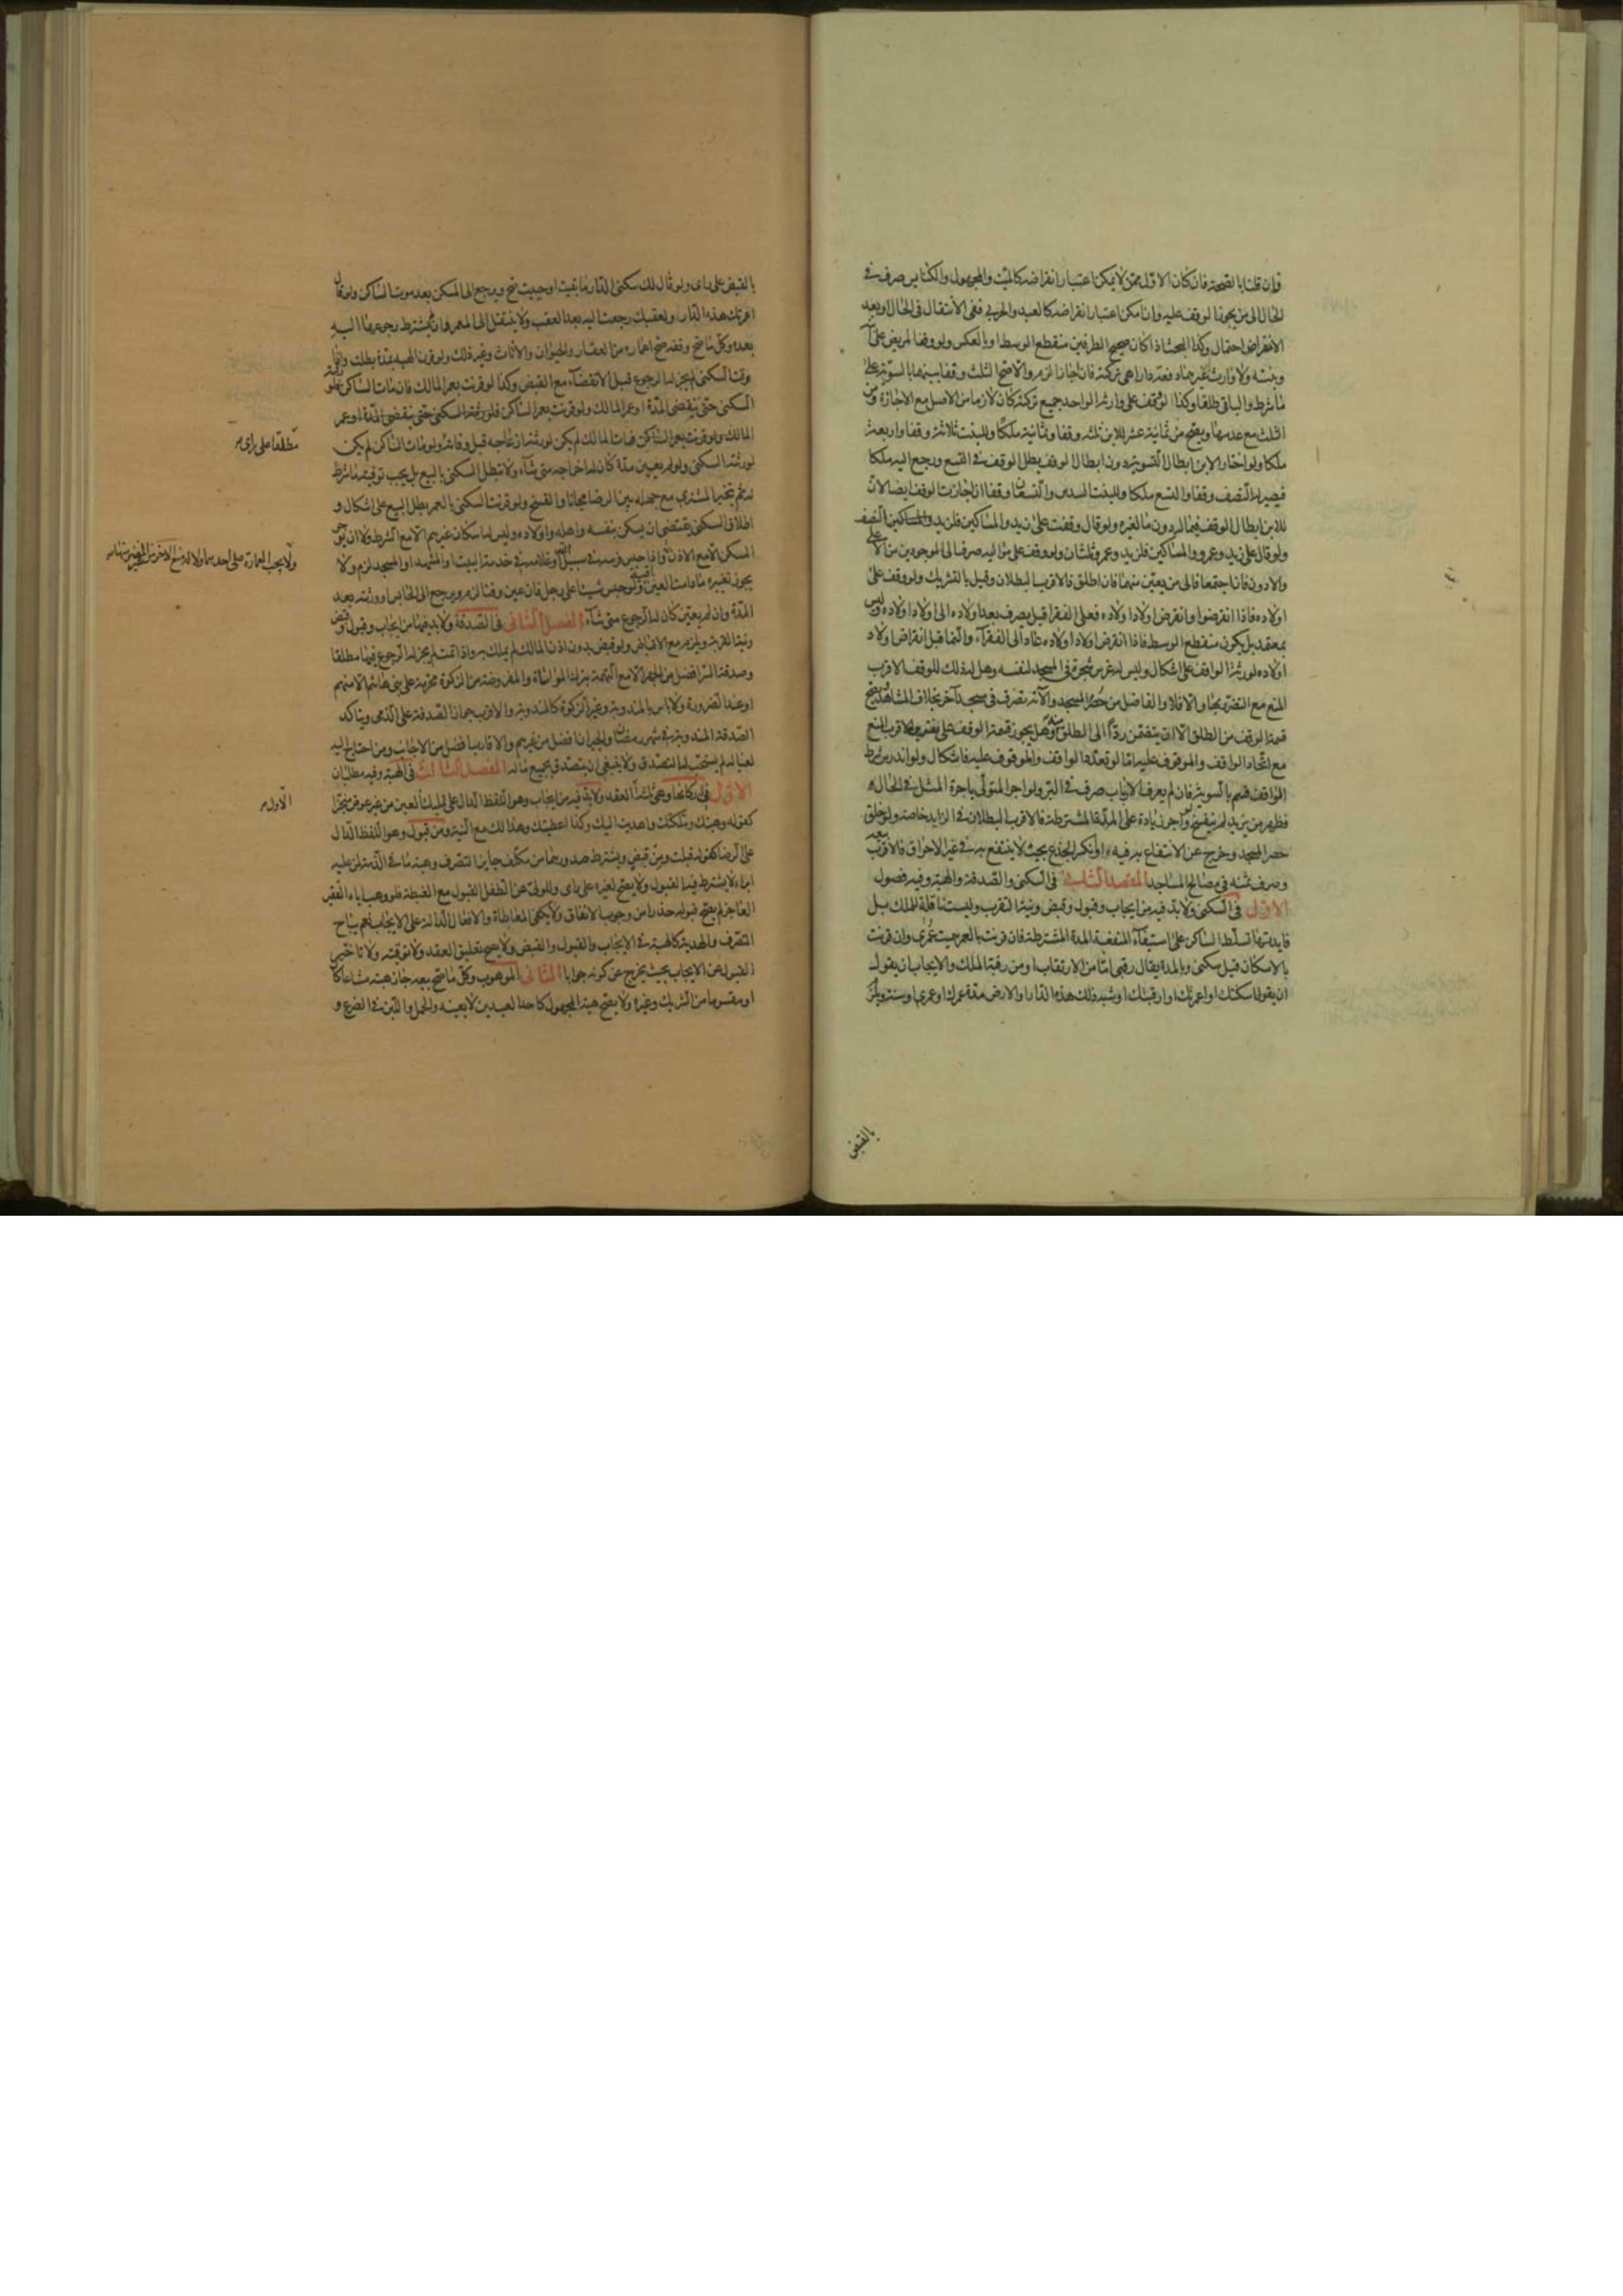 فان قلنا بالصحة فان كان الاول ممن لا يمكن اعتبار انقراضه كالميت والمجهول والكنايس صرف في
الحال الى من يجوز الوقف عليه وان امكن اعتبار انقراضه كالعبد والحربي ففي الانتقال في الحال او بعد
الانقراض احتمال وكذا البحث اذا كان صحيح الطرفين منقطع الوسط او بالعكس ولو وقف المريض على ابنه
وبنته ولا وارث غيرهما دفعة دارا هي تركته فان اجازا لزم والا صح الثلث وقفا بينهما بالسوية على
ما شرط والباقي طلقا وكذا لو وقف على وارثه الواحد جميع تركته كان لازما من الاصل مع الاجازة ومن
الثلث مع عدمها ويصح من ثمانية عشر للابن ثلثه وقفا وثمانية ملكا وللبنت ثلاثة وقفا واربعة
ملكا ولو اختار الابن ابطال التسوية دون ابطال الوقف بطل الوقف في التسع ورجع اليه ملكا
فيصير له النصف وقفا والتسع ملكا وللبنت السدس والتسعان وقفا ان اجازت الوقف ايضا لان
للابن ابطال الوقف فيما له دون ما لغيره ولو قال وقفت على زيد والمساكين فلزيد النصف
ولو قال على زيد وعمرو والمساكين فلزيد وعمرو ثلثان ولو وقف على مواليه صرف الى الموجودين من الاعلى
والادون فان اجتمعا فالى من يعين منهما فان اطلق فالاقرب البطلان وقيل بالتشريك ولو وقف على
اولاده فاذا انقرضوا وانقرض اولاد اولاده فعلى الفقرا قيل يصرف بعد اولاده الى اولاد اولاده وليس
بمعتمد بل يكون منقطع الوسط فاذا انقرض اولاد اولاده عاد الى الفقرآء والنما قبل انقراض اولاد
اولاده لورثة الواقف على اشكال وليس له غرس شجرة في المسجد لنفسه وهل له ذلك للوقف الاقرب
المنع مع التضرر بها والا فلا والفاضل من حصر المسجد والآته تصرف في مسجد آخر بخلاف المشاهد ويصح
قسمة الوقف من الطلق الا ان يتضمن ردا الى الطلق منه وهل يجوز قسمة الوقف على نفسه الاقرب المنع
مع اتحاد الواقف والموقوف عليه اما لو تعدد الواقف والموقوف عليه فاشكال ولو اندرس شرط
الواقف قسم بالسوية فان لم يعرف الارباب صرف في البر ولو اجر المتولي باجرة المثل في الحال
فظهر من يزيد لم ينفسخ ولو اجر زيادة على المدة المشترطة فالاقرب البطلان في الزايد خاصة ولو خلق
حصر المسجد وخرج عن الانتفاع به فيه او انكسر الجذع بحيث لا ينتفع به في غير الاحراق فالاقرب بيعه
وصرف ثمنه في مصالح المساجد المقصد الثاني في السكنى والصدقة والهبة وفيه فصول
الاول في السكنى ولابد فيه من ايجاب وقبول وقبض ونية التقرب وليست ناقلة للملك بل
فايدتها تسلط الساكن على استيفآء المنفعة المدة المشترطة فان قرنت بالعمر سميت عمرى وان قرنت
بالاسكان قيل سكنى وبالمدة يقال رقبى اما من الارتقاب او من رقبة الملك والايجاب ان يقول
ان يقول اسكنتك او اعمرتك او ارقبتك او شبه ذلك هذه الدار او الارض مدة عمرك او عمري او سنة ويلزم
بالقبض
بالقبض على راى ولو قال لك سكنى الدار ما بقيت او حييت صح ويرجع الى المسكن بعد موت الساكن ولو قال
اعمرتك هذه الدار ولعقبك رجعت اليه بعد العقب ولا ينتقل الى المعمر وان لم يشترط رجوعها اليه
بعده وكل ما صح وقفه صح اعماره من العقار والحيوان والاثاث وغير ذلك ولو قرن الهبة بمدة بطلت واذا
وقت السكنى لم يجز له الرجوع قبل الانقضآء مع القبض وكذا لو قرنت بعمر المالك فان مات الساكن فلورثته
السكنى حتى ينقضي المدة او عمر المالك ولو قرنت بعمر الساكن فلورثة السكنى حتى ينقضي المدة او عمر
المالك ولو قرنت بعمر الساكن فمات المالك لم يكن لورثته ازعاجه قبل وفاته ولو مات الساكن لم يكن
مطلقا على راى
لورثته السكنى ولو لم يعين مدة كان له اخراجه متى شاء ولا تبطل السكنى بالبيع بل يجب توفية ما شرط
له ثم تخير المشتري مع جهله بين الرضا مجانا والفسخ ولو قرنت السكنى بالعمر بطل البيع على اشكال و
اطلاق السكنى يقتضي ان يسكن بنفسه واهله واولاده وليس له اسكان غيرهم الا مع الشرط ولا ان يوجر
المسكن الا مع الاذن واذا حبس فرسه في سبيل الله او غلامه في خدمة البيت او المشهد او المسجد لزم ولا
يجوز تغييره ما دامت العين باقية ولو حبس شيئا على رجل فان عين وقتا لزم ويرجع الى الحابس او ورثته بعد
المدة وان لم يعين كان له الرجوع متى شآء الفصل الثاني في الصدقة ولابد فيها من ايجاب وقبول وقبض
ونية القربة ويلزم مع الاقباض ولو قبض بدون اذن المالك لم يملك به واذا تمت لم يجز له الرجوع فيها مطلقا
وصدقة السر افضل من الجهر الا مع التهمة بترك المواساة والمفروضة من الزكوة محرمة على بني هاشم الا منهم
او عند الضرورة ولا باس بالمندوبة وغير الزكوة كالمندوبة والاقرب جواز الصدقة على الذمي ويتاكد
الصدقة المندوبة في شهر رمضان والجيران افضل من غيرهم والاقارب افضل من الاجانب ومن احتاج اليه
لعياله لم يستحب له التصدق ولا ينبغي ان يتصدق بجميع ماله الفصل الثالث في الهبة وفيه مطلبان
الاول في اركانها وهي ثلثة العقد ولابد فيه من ايجاب وهو اللفظ الدال على تمليك العين من غير عوض منجزا
الاول
كقوله وهبتك وملكتك واهديت اليك وكذا اعطيتك وهذا لك مع النية ومن قبول وهو اللفظ الدال
على الرضا كقوله قبلت ومن قبض ويشترط صدورهما من مكلف جايز التصرف وهبة ما في الذمة لمن عليه
ابراء لا يشترط فيه القبول ولا يصح لغيره على راى وللولي عن الطفل القبول مع الغبطة فلو وهب اباه الفقير
العاجز لم يصح قبوله حذرا من وجوب الانفاق ولا يكفي المعاطاة والافعال الدالة على الايجاب نعم يباح
التصرف والهدية كالهبة في الايجاب والقبول والقبض ولا يصح تعليق العقد ولا توقيته ولا تاخير
القبول عن الايجاب بحيث يخرج عن كونه جوابا الثاني الموهوب وكل ما صح بيعه جاز هبته مشاعا كان
او مقسوما من الشريك وغيره ولا يصح هبة المجهول كاحد العبدين لا بعينه والحمل واللبن في الضرع و